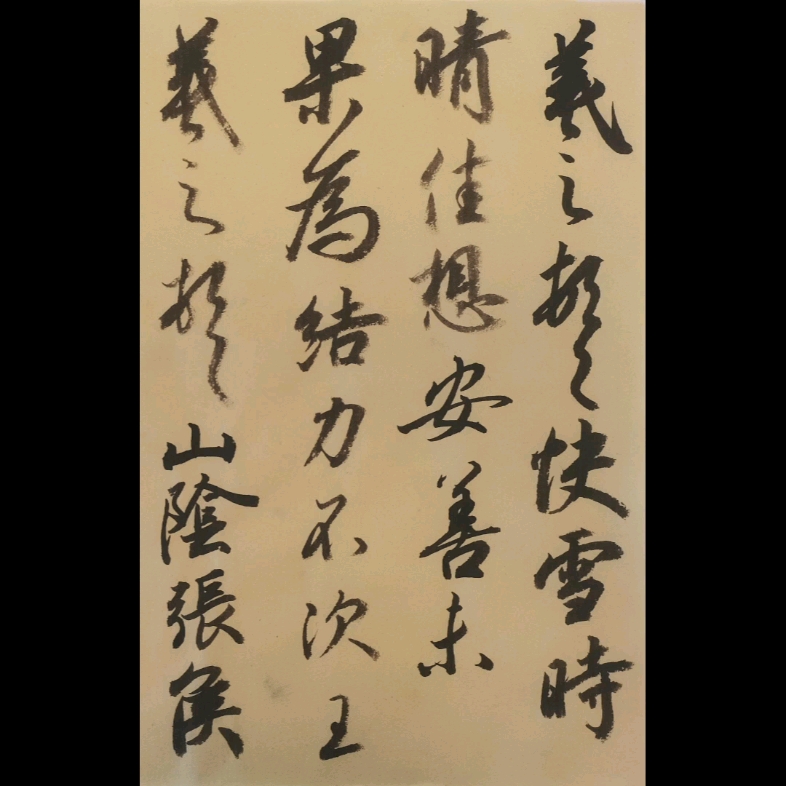 羲之頓首快雪時
晴佳想安善未
果為結力不次王
羲之頓首山陰張侯